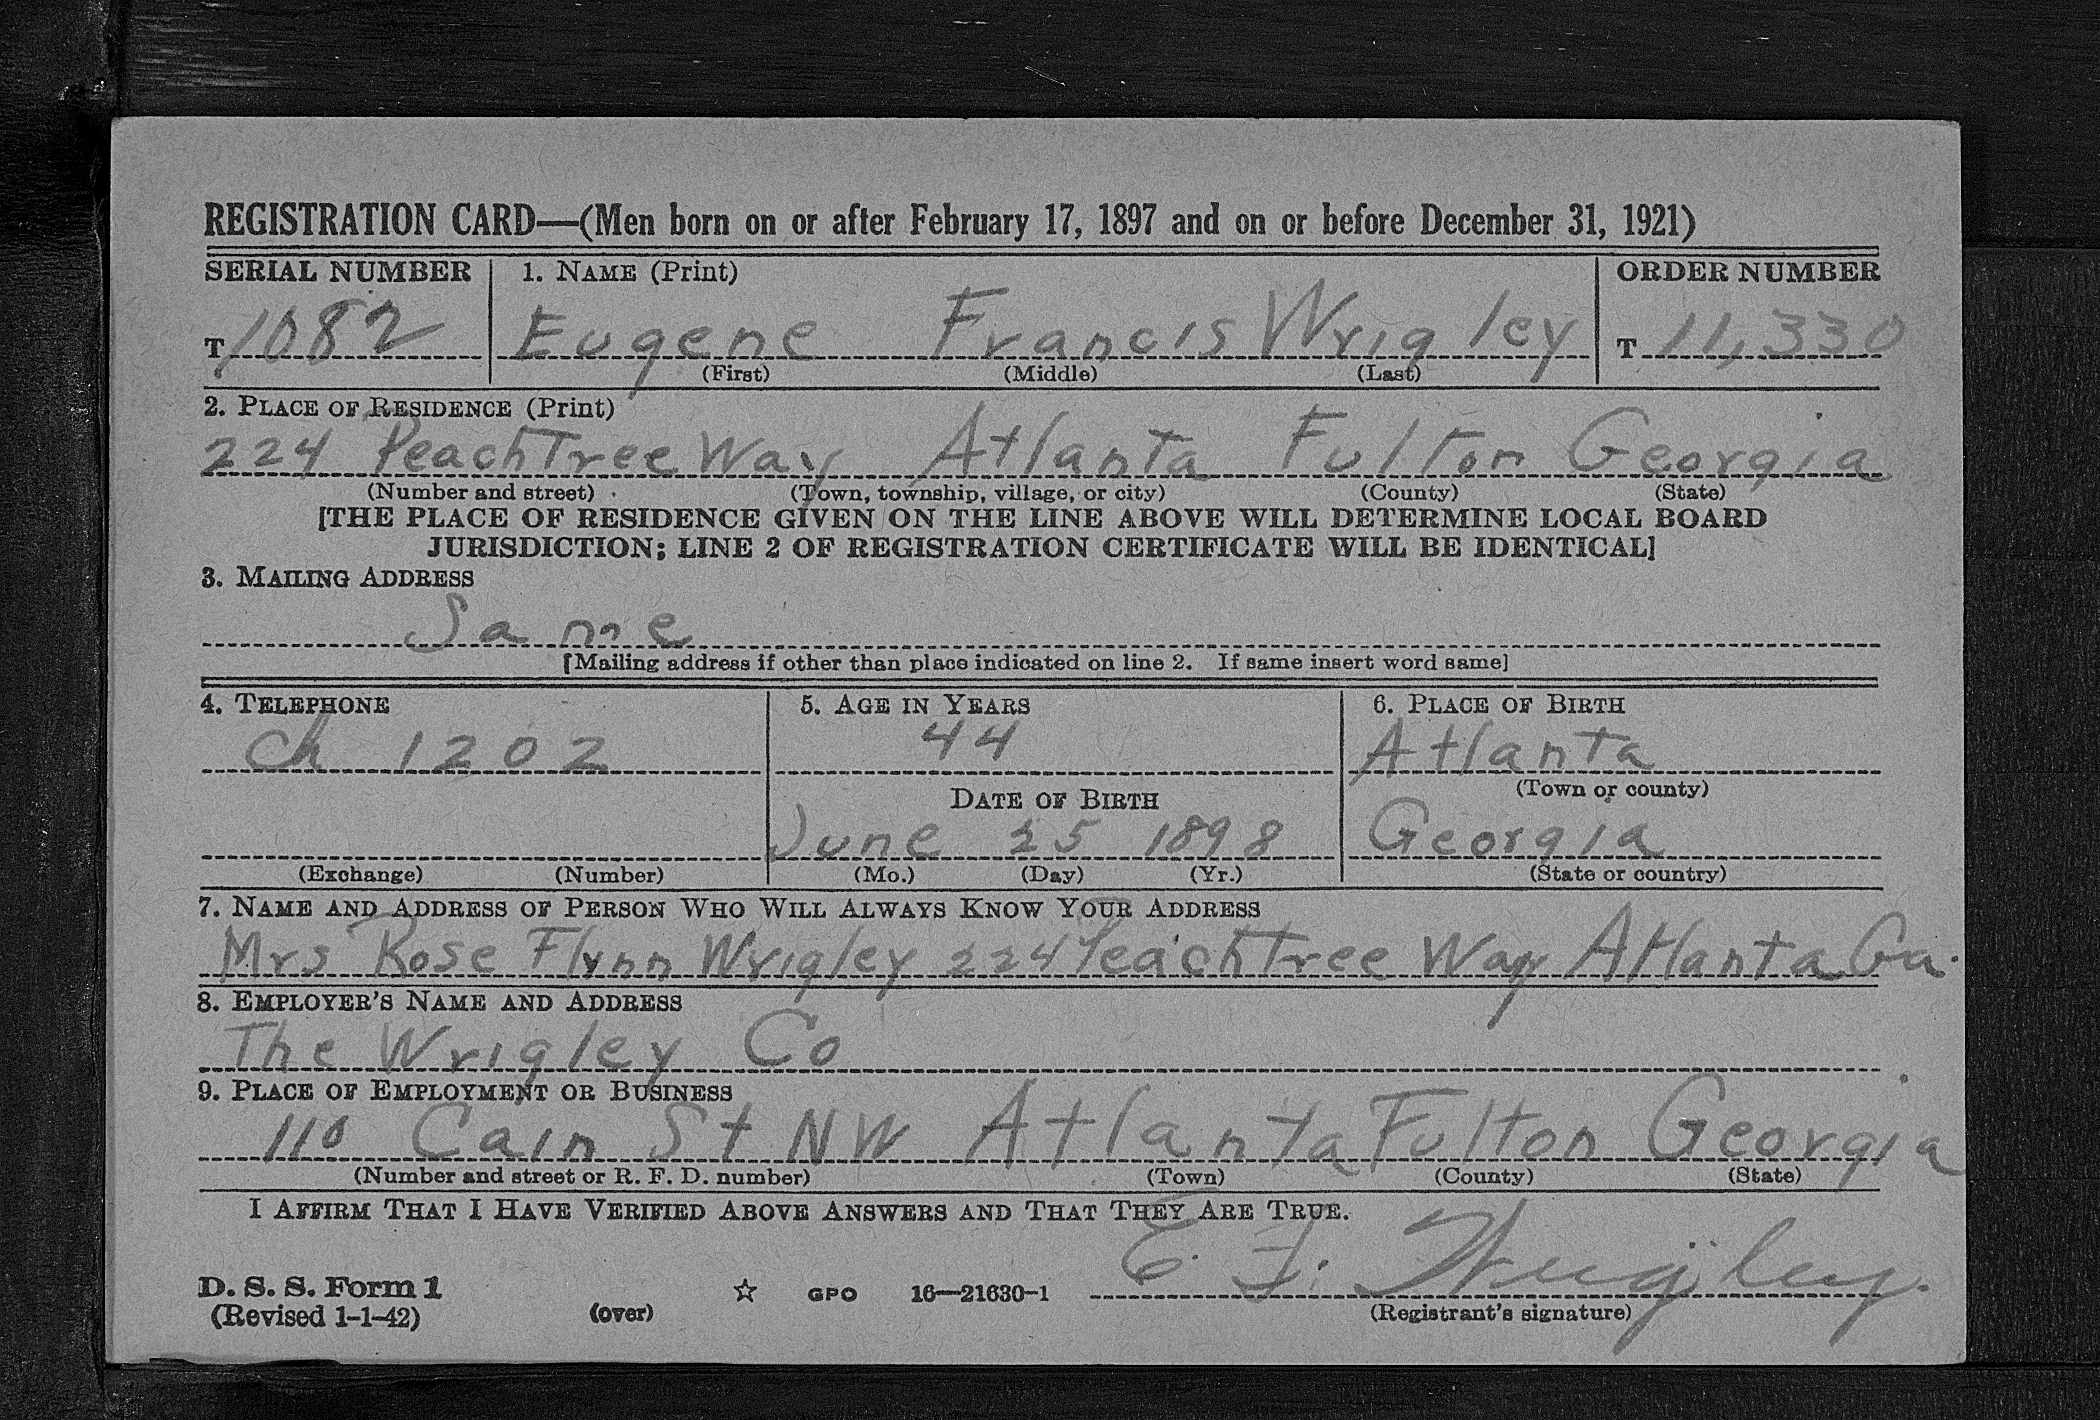 REGISTRATION CARD—(Men born on or after February 17, 1897 and on or before December 31, 1921)
SERIAL NUMBER 1. NAME (Print) ORDER NUMBER
T 1082 Eugene Francis Wrigley T 11,330
(First) (Middle) (Last)
2. PLACE OF RESIDENCE (Print)
224 PeachTree Way Atlanta Fulton Georgia
(Number and street) (Town, township, village, or city) (County) (State)
[THE PLACE OF RESIDENCE GIVEN ON THE LINE ABOVE WILL DETERMINE LOCAL BOARD
JURISDICTION; LINE 2 OF REGISTRATION CERTIFICATE WILL BE IDENTICAL]
3. MAILING ADDRESS
Same
[Mailing address if other than place indicated on line 2. If same insert word same]
4. TELEPHONE 5. AGE IN YEARS 6. PLACE OF BIRTH
Ch 1202 44 Atlanta
(Town or county)
DATE OF BIRTH
June 25 1898 Georgia
(Exchange) (Number) (Mo.) (Day) (Yr.) (State or country)
7. NAME AND ADDRESS OF PERSON WHO WILL ALWAYS KNOW YOUR ADDRESS
Mrs Rose Flynn Wrigley 224 PeachTree Way Atlanta Ga.
8. EMPLOYER'S NAME AND ADDRESS
The Wrigley Co
9. PLACE OF EMPLOYMENT OR BUSINESS
110 Cain St NW Atlanta Fulton Georgia
(Number and street or R. F. D. number) (Town) (County) (State)
I AFFIRM THAT I HAVE VERIFIED ABOVE ANSWERS AND THAT THEY ARE TRUE.
E. F. Wrigley.
D. S. S. Form 1 ☆ GPO 16—21630-1
(Revised 1-1-42) (over) (Registrant's signature)